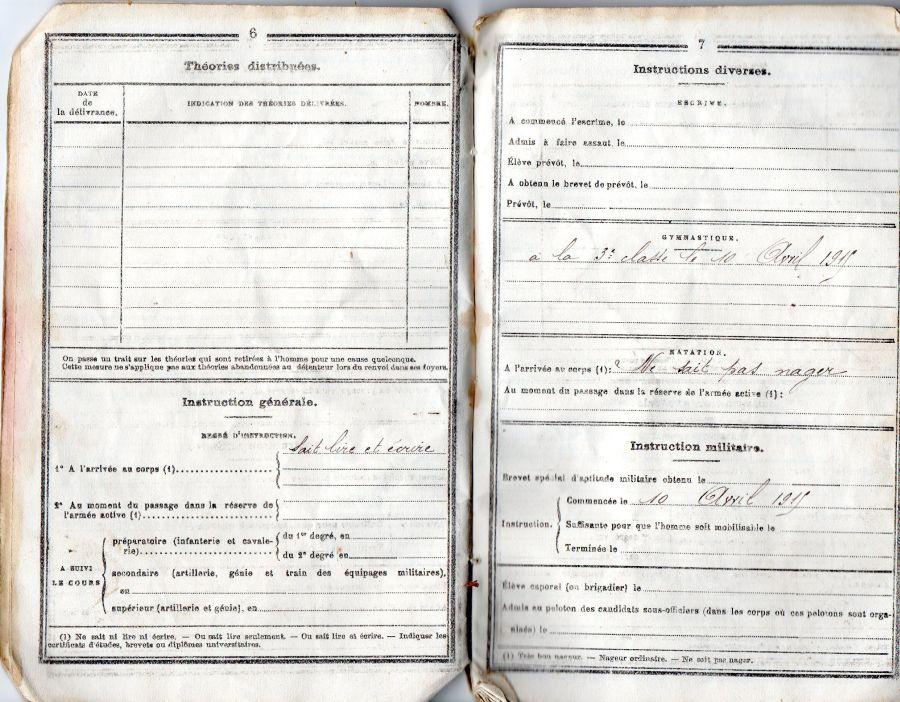 6
Théories distribuées.
DATE
de
la délivrance.
INDICATION DES THÉORIES DÉLIVRÉES.
NOMBRE.
On passe un trait sur les théories qui sont retirées à l'homme pour une cause quelconque.
Cette mesure ne s'applique pas aux théories abandonnées au détenteur lors du renvoi dans ses foyers.
Instruction générale.
DEGRÉ D'INSTRUCTION.
1° A l'arrivée au corps (1) Sait lire et écrire
2° Au moment du passage dans la réserve de
l'armée active (1)
A SUIVI
LE COURS
préparatoire (infanterie et cavale-
rie)
du 1er degré, en
du 2e degré en
secondaire (artillerie, génie et train des équipages militaires),
en
supérieur (artillerie et génie), en
(1) Ne sait ni lire ni écrire, — Ou sait lire seulement. — Ou sait lire et écrire. — Indiquer les
certificats d'études, brevets ou diplômes universitaires.
7
Instructions diverses.
ESCRIME.
A commencé l'escrime, le
Admis à faire assaut, le
Élève prévôt, le
A obtenu le brevet de prévôt, le
Prévôt, le
GYMNASTIQUE.
a la 3e classe le 10 Avril 1915
NATATION.
A l'arrivée au corps (1): Ne sait pas nager
Au moment du passage dans la réserve de l'armée active (1):
Instruction militaire.
Brevet spécial d'aptitude militaire obtenu le
Instruction.
Commencée le 10 Avril 1915
Suffisante pour que l'homme soit mobilisable le
Terminée le
Élève caporal (ou brigadier) le
Admis au peloton des candidats sous-officiers (dans les corps où ces pelotons sont orga-
nisés) le
(1) Très bon nageur. — Nageur ordinaire. — Ne sait pas nager.